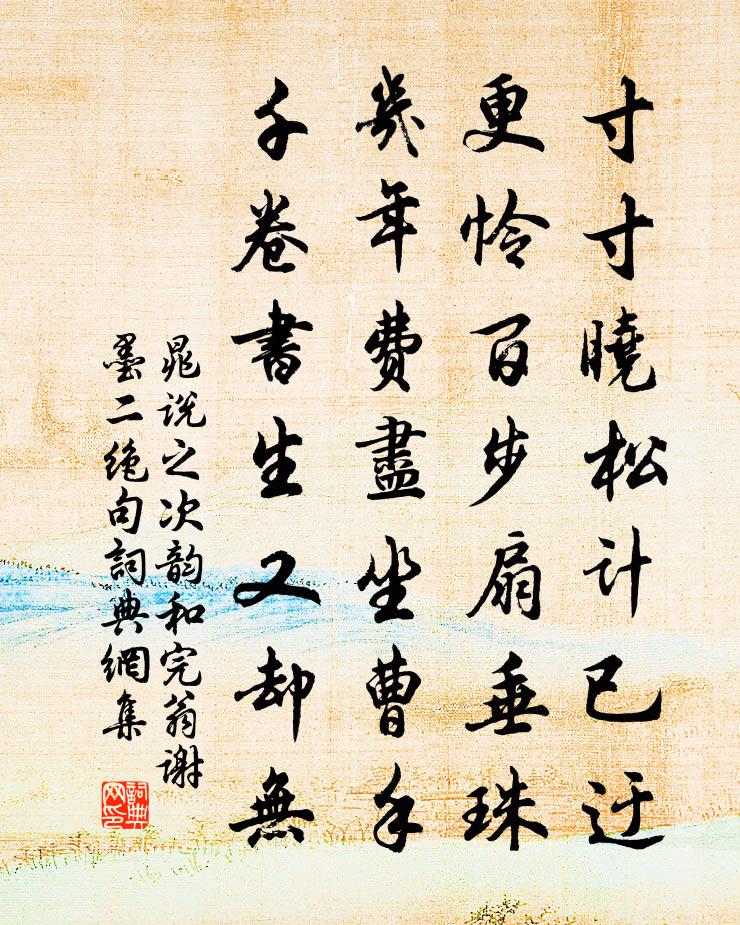 寸寸曉松计已迂
更怜百步扇垂珠
幾年費盡坐曹手
千卷書生又却無
晁说之次韵和完翁谢
墨二绝句詞典網集
詞典
网印